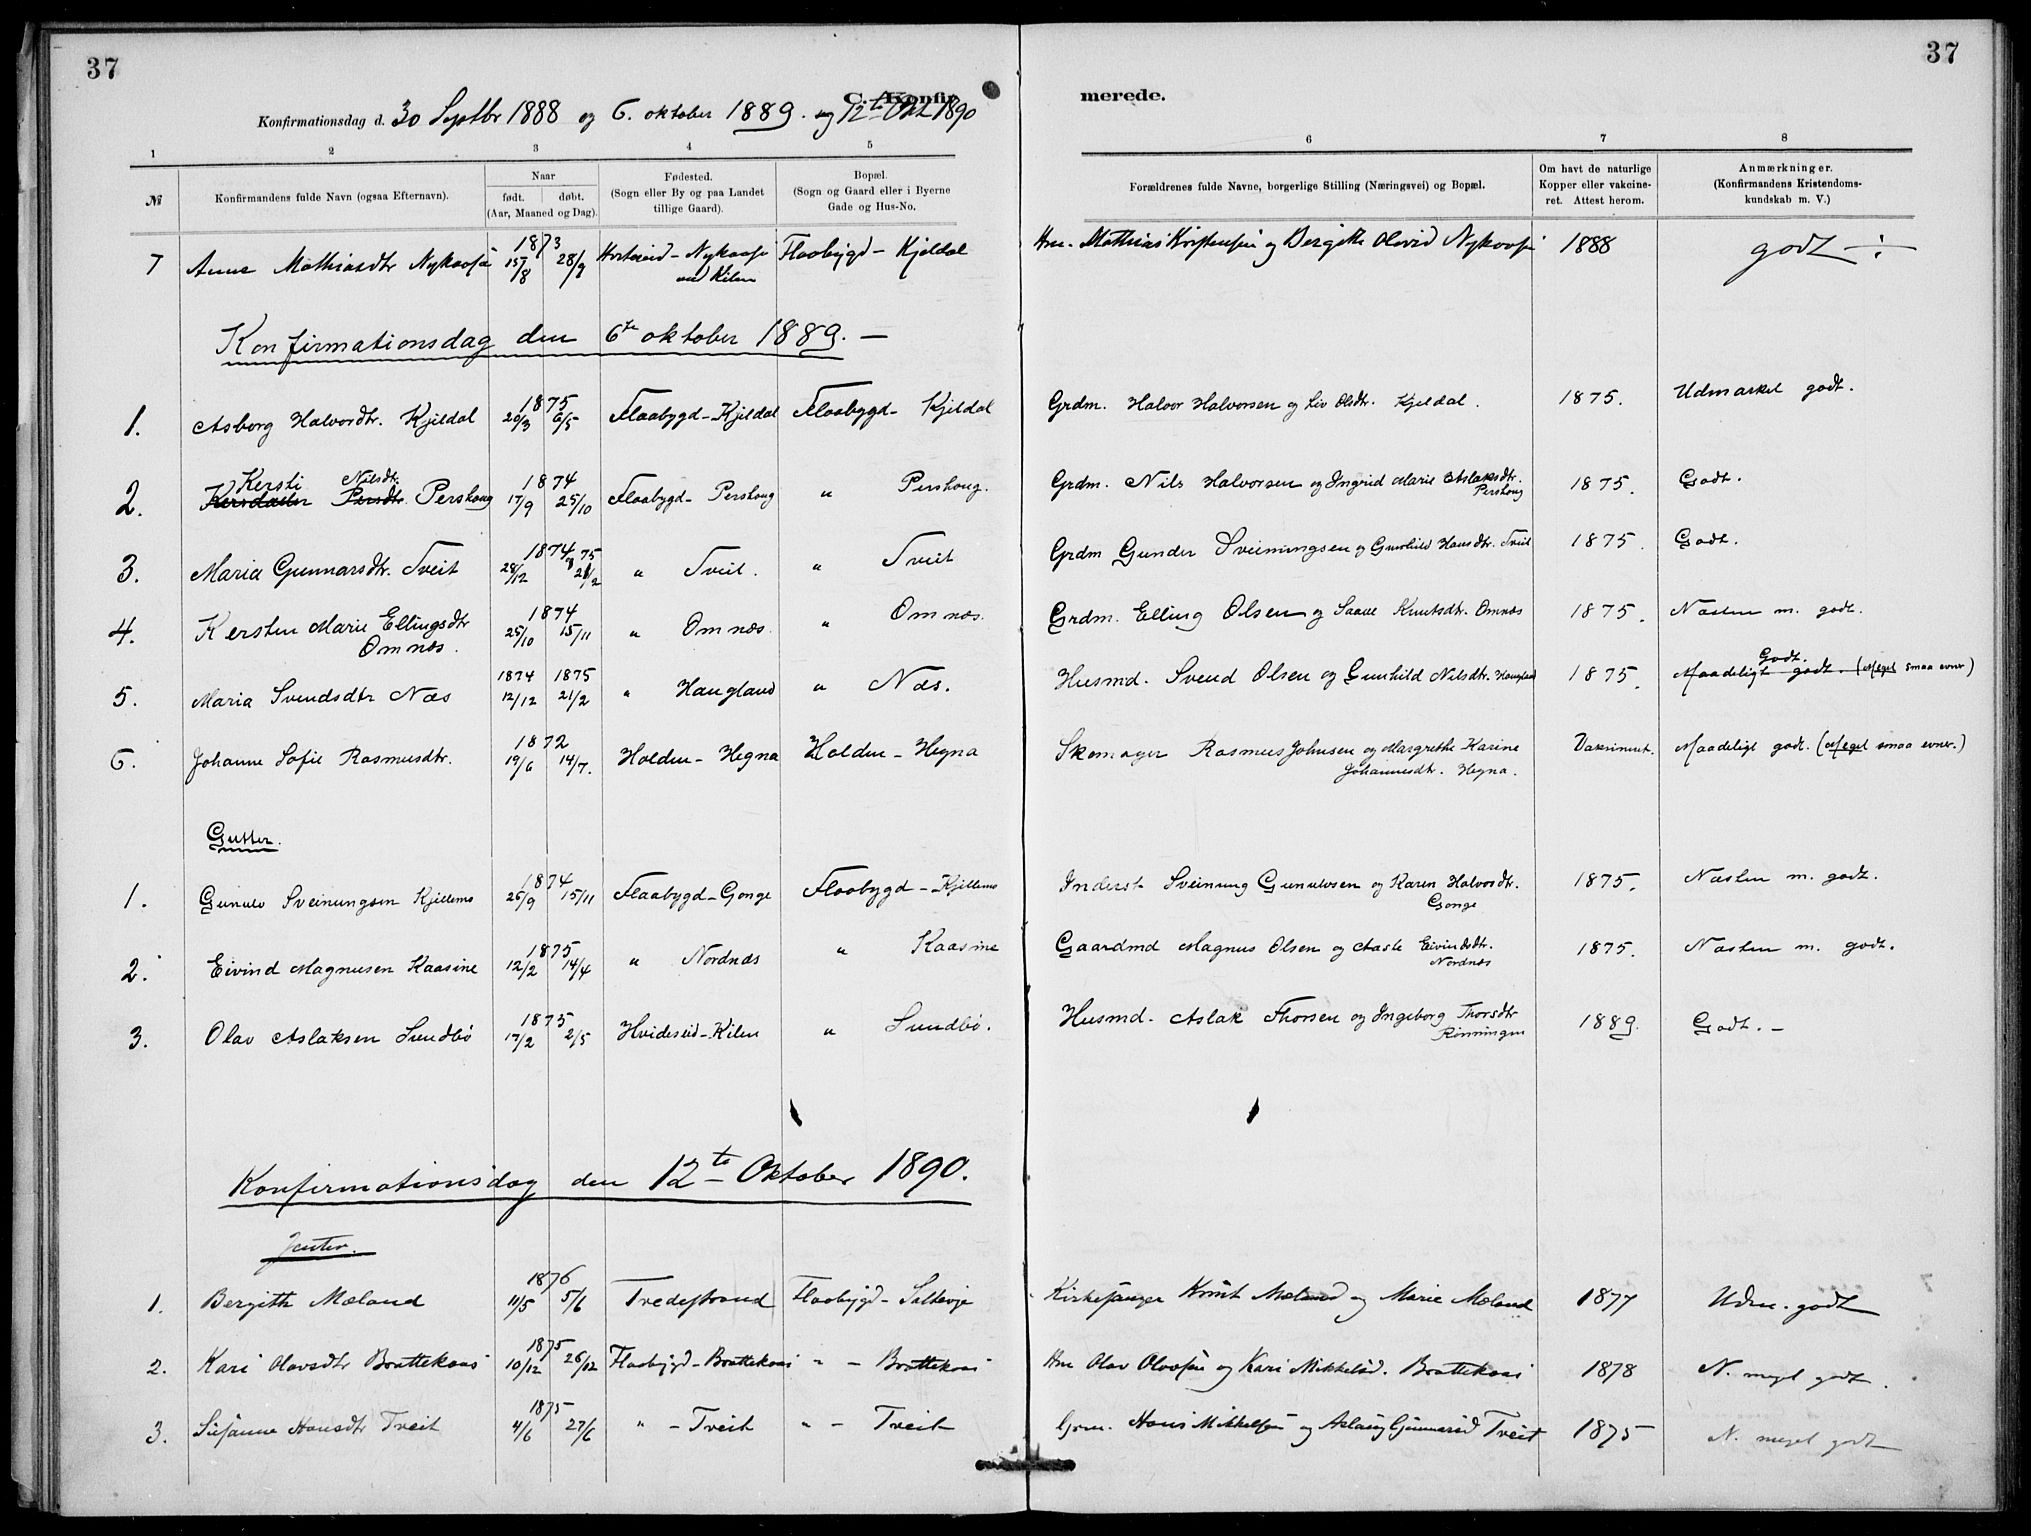 37
37
C. Konfir merede.
Konfirmationsdag d. 30 Septbr 1888 og 6. oktober 1889. og 12te Okt 1890
1 2 3 4 5 6 7 8
№
Konfirmandens fulde Navn (ogsaa Efternavn).
Naar
født. døbt.
(Aar, Maaned og Dag).
Fødested.
(Sogn eller By og paa Landet
tillige Gaard).
Bopæl.
(Sogn og Gaard eller i Byerne
Gade og Hus-No.
Forældrenes fulde Navne, borgerlige Stilling (Næringsvei) og Bopæl.
Om havt de naturlige
Kopper eller vakcine-
ret. Attest herom.
Anmærkninger.
(Konfirmandens Kristendoms-
kundskab m. V.)
1873
7 Anne Mathiasdtr Nykaasa 15/8 28/9 Nykaasa Flaabygd - Kjeldal Hm. Mathias Kristensen og Bergitte Olavsd Nykaasa 1888 godt ÷
ved Kilen
Konfirmationsdag den 6te oktober 1889. —
1875
1. Asborg Halvorsdtr. Kjeldal 20/3 6/5 Flaabygd - Kjeldal Flaabygd - Kjeldal Grdm. Halvor Halvorsen og Liv Olsdtr. Kjeldal. 1875. Udmærket godt.
Kersti Nilsdtr. 1874
2. Persdtr. Pershoug 17/9 25/10 Flaabygd - Pershoug " Pershoug. Grdm. Nils Halvorsen og Ingrid Marie Aslaksdtr. 1875. Godt.
Pershoug
1874 75
3. Maria Gunnarsdtr. Tveit 28/12 21/2 " Tveit. " Tveit Grdm Gunder Sveinungsen og Gunhild Hansdtr. Tveit 1875. Godt.
1874
4. Kersten Marie Ellingsdtr 25/10 15/11 " Omnæs. " Omnæs. Grdm. Elling Olsen og Saave Knutsdtr. Omnæs 1875. Næsten m. godt.
Omnæs.
1874 1875 Godt.
5. Maria Svendsdtr Næs 12/12 21/2 " Haugland " Næs. Husmd. Svend Olsen og Gunhild Nilsdtr. Haugland 1875. Maadeligt godt. (Meget smaa evner)
1872
6. Johanne Sofie Rasmusdtr. 19/6 14/7. Holden - Hegna Holden - Hegna Skomager Rasmus Johnsen og Margrethe Karine Vakcineret. Maadeligt godt. (Meget smaa evner.)
Johannesdtr. Hegna.
Gutter.
1874
1. Gunulv Sveinungsen Kjillemo 26/9 15/11 Flaabygd - Gonge Flaabygd - Kjillemo Inderst Sveinung Gunulvsen og Karen Halvorsdtr. 1875. Næsten m. godt.
Gonge
1875
2. Eivind Magnusen Kaasine 12/2 14/4 " Nordnæs " Kaasine Gaardmd Magnus Olsen og Aasle Eivindsdtr. 1875. Næsten m. godt.
Nordnæs
1875
3. Olav Aslaksen Sundbö 17/2 2/5 Hvideseid - Kilen " Sundbö. Husmd. Aslak Thorsen og Ingeborg Thorsdtr 1889. Godt. -
Rönningen
Konfirmationsdag den 12te Oktober 1890.
Jenter.
1876
1. Bergitte Mæland 11/5 5/6 Tvedestrand Flaabygd - Kirkesanger Knut Mæland og Marie Mæland 1877 Udm. godt
1875
2. Kari Olavsdtr Brattekaas 10/12 26/12 Flaabygd - Brattekaas " - Brattekaas Hm Olav Olavsen og Kari Mikkelsd. Brattekaas 1878 N. meget godt.
1875
3. Susanne Hansdtr Tveit 4/6 27/6 " - Tveit " - Tveit Grm. Hans Mikkelsen og Aslaug Gunnarsd Tveit 1875 N. meget godt